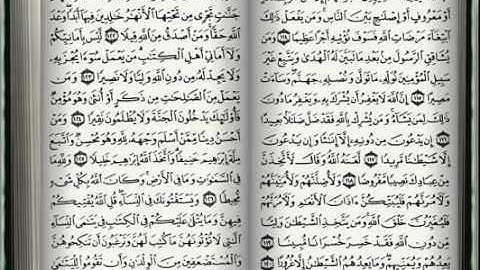 أَوْ مَعْرُوفٍ أَوْ إِصْلَٰحٍ بَيْنَ ٱلنَّاسِ وَمَن يَفْعَلْ ذَٰلِكَ
ٱبْتِغَآءَ مَرْضَاتِ ٱللَّهِ فَسَوْفَ نُؤْتِيهِ أَجْرًا عَظِيمًا ١١٤ وَمَن
يُشَاقِقِ ٱلرَّسُولَ مِنۢ بَعْدِ مَا تَبَيَّنَ لَهُ ٱلْهُدَىٰ وَيَتَّبِعْ غَيْرَ
سَبِيلِ ٱلْمُؤْمِنِينَ نُوَلِّهِۦ مَا تَوَلَّىٰ وَنُصْلِهِۦ جَهَنَّمَ وَسَآءَتْ
مَصِيرًا ١١٥ إِنَّ ٱللَّهَ لَا يَغْفِرُ أَن يُشْرَكَ بِهِۦ وَيَغْفِرُ مَا دُونَ
ذَٰلِكَ لِمَن يَشَآءُ وَمَن يُشْرِكْ بِٱللَّهِ فَقَدْ ضَلَّ ضَلَٰلًۢا بَعِيدًا
١١٦ إِن يَدْعُونَ مِن دُونِهِۦٓ إِلَّآ إِنَٰثًا وَإِن يَدْعُونَ
إِلَّا شَيْطَٰنًا مَّرِيدًا ١١٧ لَّعَنَهُ ٱللَّهُ وَقَالَ لَأَتَّخِذَنَّ
مِنْ عِبَادِكَ نَصِيبًا مَّفْرُوضًا ١١٨ وَلَأُضِلَّنَّهُمْ وَلَأُمَنِّيَنَّهُمْ
وَلَءَامُرَنَّهُمْ فَلَيُبَتِّكُنَّ ءَاذَانَ ٱلْأَنْعَٰمِ وَلَءَامُرَنَّهُمْ
فَلَيُغَيِّرُنَّ خَلْقَ ٱللَّهِ وَمَن يَتَّخِذِ ٱلشَّيْطَٰنَ وَلِيًّا
مِّن دُونِ ٱللَّهِ فَقَدْ خَسِرَ خُسْرَانًا مُّبِينًا ١١٩
يَعِدُهُمْ وَيُمَنِّيهِمْ وَمَا يَعِدُهُمُ ٱلشَّيْطَٰنُ إِلَّا غُرُورًا
جَنَّٰتٍ تَجْرِى مِن تَحْتِهَا ٱلْأَنْهَٰرُ خَٰلِدِينَ فِيهَآ أَبَدًا وَعْدَ
ٱللَّهِ حَقًّا وَمَنْ أَصْدَقُ مِنَ ٱللَّهِ قِيلًا ١٢٢ لَّيْسَ بِأَمَانِيِّكُمْ
وَلَآ أَمَانِىِّ أَهْلِ ٱلْكِتَٰبِ مَن يَعْمَلْ سُوٓءًا يُجْزَ بِهِۦ
وَلَا يَجِدْ لَهُۥ مِن دُونِ ٱللَّهِ وَلِيًّا وَلَا نَصِيرًا ١٢٣ وَمَن
يَعْمَلْ مِنَ ٱلصَّٰلِحَٰتِ مِن ذَكَرٍ أَوْ أُنثَىٰ وَهُوَ مُؤْمِنٌ
فَأُو۟لَٰٓئِكَ يَدْخُلُونَ ٱلْجَنَّةَ وَلَا يُظْلَمُونَ نَقِيرًا ١٢٤ وَمَنْ
أَحْسَنُ دِينًا مِّمَّنْ أَسْلَمَ وَجْهَهُۥ لِلَّهِ وَهُوَ مُحْسِنٌ وَٱتَّبَعَ
مِلَّةَ إِبْرَٰهِيمَ حَنِيفًا وَٱتَّخَذَ ٱللَّهُ إِبْرَٰهِيمَ خَلِيلًا ١٢٥ وَلِلَّهِ مَا
فِى ٱلسَّمَٰوَٰتِ وَمَا فِى ٱلْأَرْضِ وَكَانَ ٱللَّهُ بِكُلِّ شَىْءٍ
مُّحِيطًا ١٢٦ وَيَسْتَفْتُونَكَ فِى ٱلنِّسَآءِ قُلِ ٱللَّهُ يُفْتِيكُمْ
فِيهِنَّ وَمَا يُتْلَىٰ عَلَيْكُمْ فِى ٱلْكِتَٰبِ فِى يَتَٰمَى ٱلنِّسَآءِ
ٱلَّٰتِى لَا تُؤْتُونَهُنَّ مَا كُتِبَ لَهُنَّ وَتَرْغَبُونَ أَن تَنكِحُوهُنَّ
وَٱلْمُسْتَضْعَفِينَ مِنَ ٱلْوِلْدَٰنِ وَأَن تَقُومُوا۟ لِلْيَتَٰمَىٰ